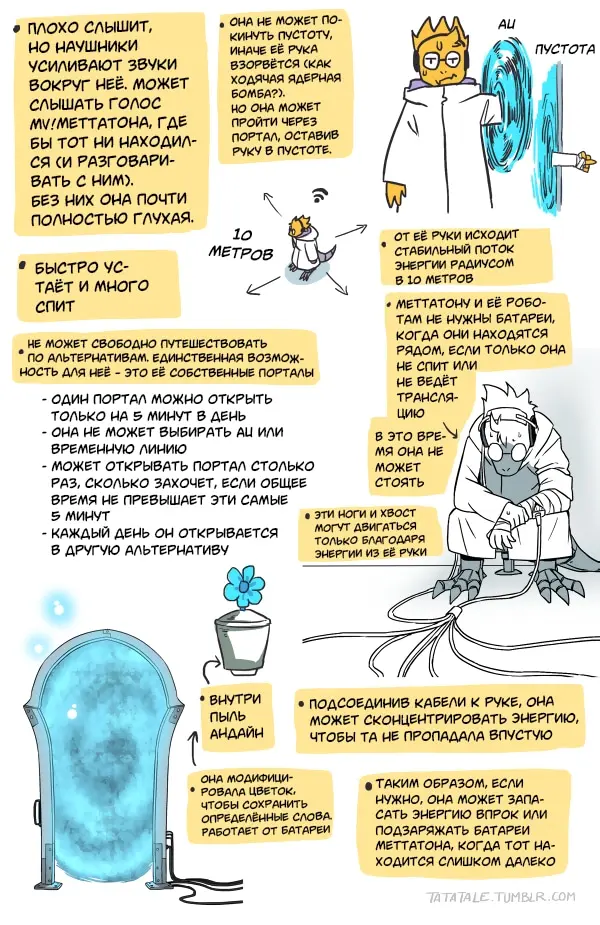 ПЛОХО СЛЫШИТ,
НО НАУШНИКИ
УСИЛИВАЮТ ЗВУКИ
ВОКРУГ НЕЁ. МОЖЕТ
СЛЫШАТЬ ГОЛОС
MV!МЕТТАТОНА, ГДЕ
БЫ ТОТ НИ НАХОДИЛ-
СЯ (И РАЗГОВАРИ-
ВАТЬ С НИМ).
БЕЗ НИХ ОНА ПОЧТИ
ПОЛНОСТЬЮ ГЛУХАЯ.
ОНА НЕ МОЖЕТ ПО-
КИНУТЬ ПУСТОТУ,
ИНАЧЕ ЕЁ РУКА
ВЗОРВЁТСЯ (КАК
ХОДЯЧАЯ ЯДЕРНАЯ
БОМБА?).
НО ОНА МОЖЕТ
ПРОЙТИ ЧЕРЕЗ
ПОРТАЛ, ОСТАВИВ
РУКУ В ПУСТОТЕ.
AU
ПУСТОТА
10
МЕТРОВ
БЫСТРО УС-
ТАЁТ И МНОГО
СПИТ
ОТ ЕЁ РУКИ ИСХОДИТ
СТАБИЛЬНЫЙ ПОТОК
ЭНЕРГИИ РАДИУСОМ
В 10 МЕТРОВ
МЕТТАТОНУ И ЕЁ РОБО-
ТАМ НЕ НУЖНЫ БАТАРЕИ,
КОГДА ОНИ НАХОДЯТСЯ
РЯДОМ, ЕСЛИ ТОЛЬКО ОНА
НЕ СПИТ ИЛИ
НЕ ВЕДЁТ
ТРАНСЛЯ-
ЦИЮ
В ЭТО ВРЕ-
МЯ ОНА НЕ
МОЖЕТ
СТОЯТЬ
НЕ МОЖЕТ СВОБОДНО ПУТЕШЕСТВОВАТЬ
ПО АЛЬТЕРНАТИВАМ. ЕДИНСТВЕННАЯ ВОЗМОЖ-
НОСТЬ ДЛЯ НЕЁ - ЭТО ЕЁ СОБСТВЕННЫЕ ПОРТАЛЫ
- ОДИН ПОРТАЛ МОЖНО ОТКРЫТЬ
ТОЛЬКО НА 5 МИНУТ В ДЕНЬ
- ОНА НЕ МОЖЕТ ВЫБИРАТЬ AU ИЛИ
ВРЕМЕННУЮ ЛИНИЮ
- МОЖЕТ ОТКРЫВАТЬ ПОРТАЛ СТОЛЬКО
РАЗ, СКОЛЬКО ЗАХОЧЕТ, ЕСЛИ ОБЩЕЕ
ВРЕМЯ НЕ ПРЕВЫШАЕТ ЭТИ САМЫЕ
5 МИНУТ
- КАЖДЫЙ ДЕНЬ ОН ОТКРЫВАЕТСЯ
В ДРУГУЮ АЛЬТЕРНАТИВУ
ЭТИ НОГИ И ХВОСТ
МОГУТ ДВИГАТЬСЯ
ТОЛЬКО БЛАГОДАРЯ
ЭНЕРГИИ ИЗ ЕЁ РУКИ
ВНУТРИ
ПЫЛЬ
АНДАЙН
ОНА МОДИФИЦИ-
РОВАЛА ЦВЕТОК,
ЧТОБЫ СОХРАНИТЬ
ОПРЕДЕЛЁННЫЕ СЛОВА.
РАБОТАЕТ ОТ БАТАРЕИ
ПОДСОЕДИНИВ КАБЕЛИ К РУКЕ, ОНА
МОЖЕТ СКОНЦЕНТРИРОВАТЬ ЭНЕРГИЮ,
ЧТОБЫ ТА НЕ ПРОПАДАЛА ВПУСТУЮ
ТАКИМ ОБРАЗОМ, ЕСЛИ
НУЖНО, ОНА МОЖЕТ ЗАПА-
САТЬ ЭНЕРГИЮ ВПРОК ИЛИ
ПОДЗАРЯЖАТЬ БАТАРЕИ
МЕТТАТОНА, КОГДА ТОТ НА-
ХОДИТСЯ СЛИШКОМ ДАЛЕКО
TATATALE.TUMBLR.COM